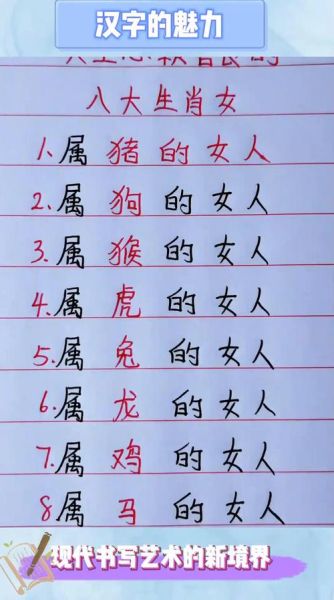 汉字的魅力
八大生肖女
1.属猪的女人
2.属狗的女人
3.属猴的女人
4.属虎的女人
5.属兔的女人
6.属龙的女人
7.属鸡的女人
8.属马的女人
现代书写艺术的新境界